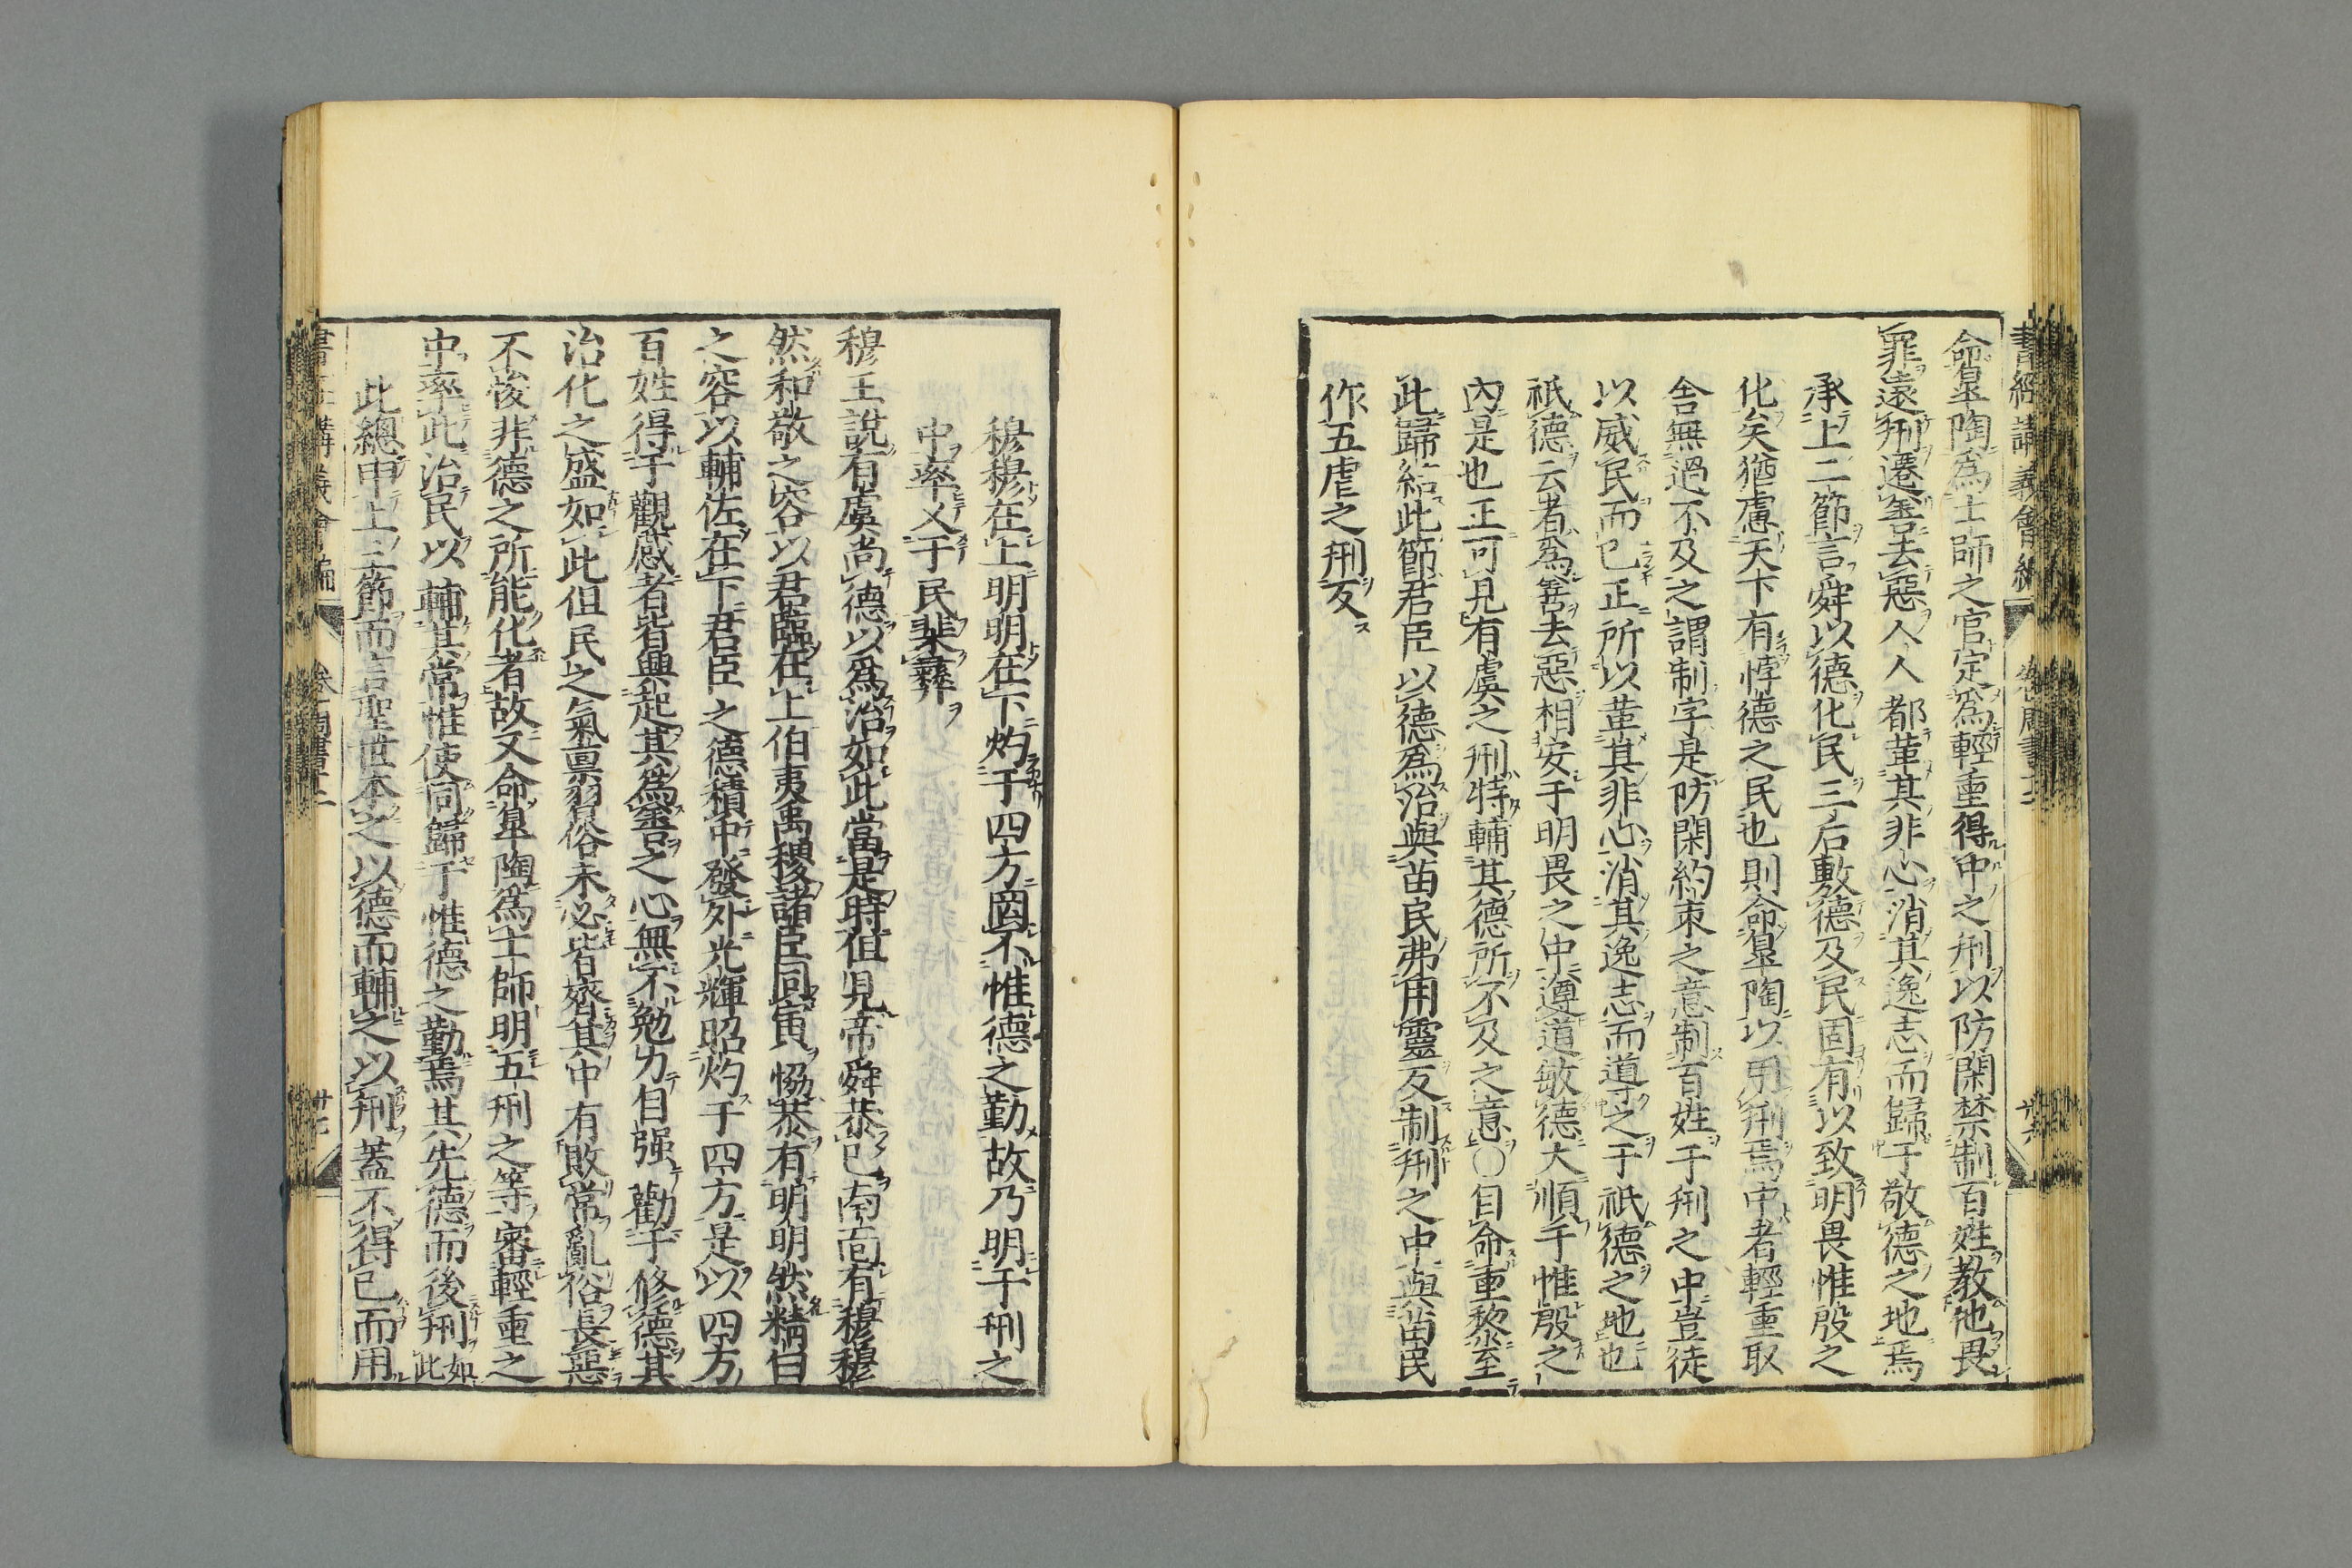 書經講義會編
命皐陶爲士師之官定爲輕重得中之刑以防閑禁制百姓教他畏
罪遠刑遷善去惡人人都革其非心消其逸志而歸于敬德之地焉
承上二節言舜以德化民三后敷德及民固有以致明畏惟殷之
化矣猶慮天下有悖德之民也則命皐陶以用刑焉中者輕重取
舍無過不及之謂制字是防閑約束之意制百姓于刑之中豈徒
以威民而已正所以革其非心消其逸志而導之于祇德之地也
祇德云者爲善去惡相安于明畏之中遵道敏德大順于惟殷之
內是也正可見有虞之刑特輔其德所不及之意○自命重黎至
此歸結此節君臣以德爲治與苗民弗用靈反制刑之中與苗民
作五虐之刑反
穆穆在上明明在下灼于四方罔不惟德之勤故乃明于刑之
中率乂于民棐彝
穆王說有虞尚德以爲治如此當是時但見帝舜恭己南面有穆穆
然和敬之容以君臨在上伯夷禹稷諸臣同寅協恭有明明然精白
之容以輔佐在下君臣之德積中發外光輝昭灼于四方是以四方
百姓得于觀感者皆興起其爲善之心無不勉力自强勸于修德其
治化之盛如此但民之氣稟習俗未必皆齊其中有敗常亂俗長惡
不悛非德之所能化者故又命皐陶爲士師明五刑之等審輕重之
中率此治民以輔其常惟使同歸于惟德之勤焉其先德而後刑如此
此總申上三節而言聖世本之以德而輔之以刑蓋不得已而用
書經講義會編 卷 周書 廿七